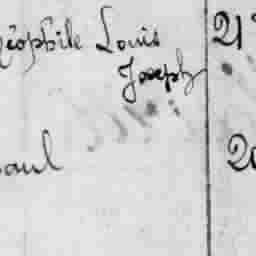 éophile Louis 21
Joseph
aul 20